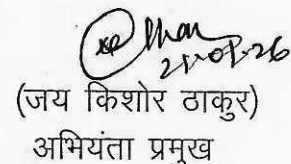 21-01-26
(जय किशोर ठाकुर)
अभियंता प्रमुख